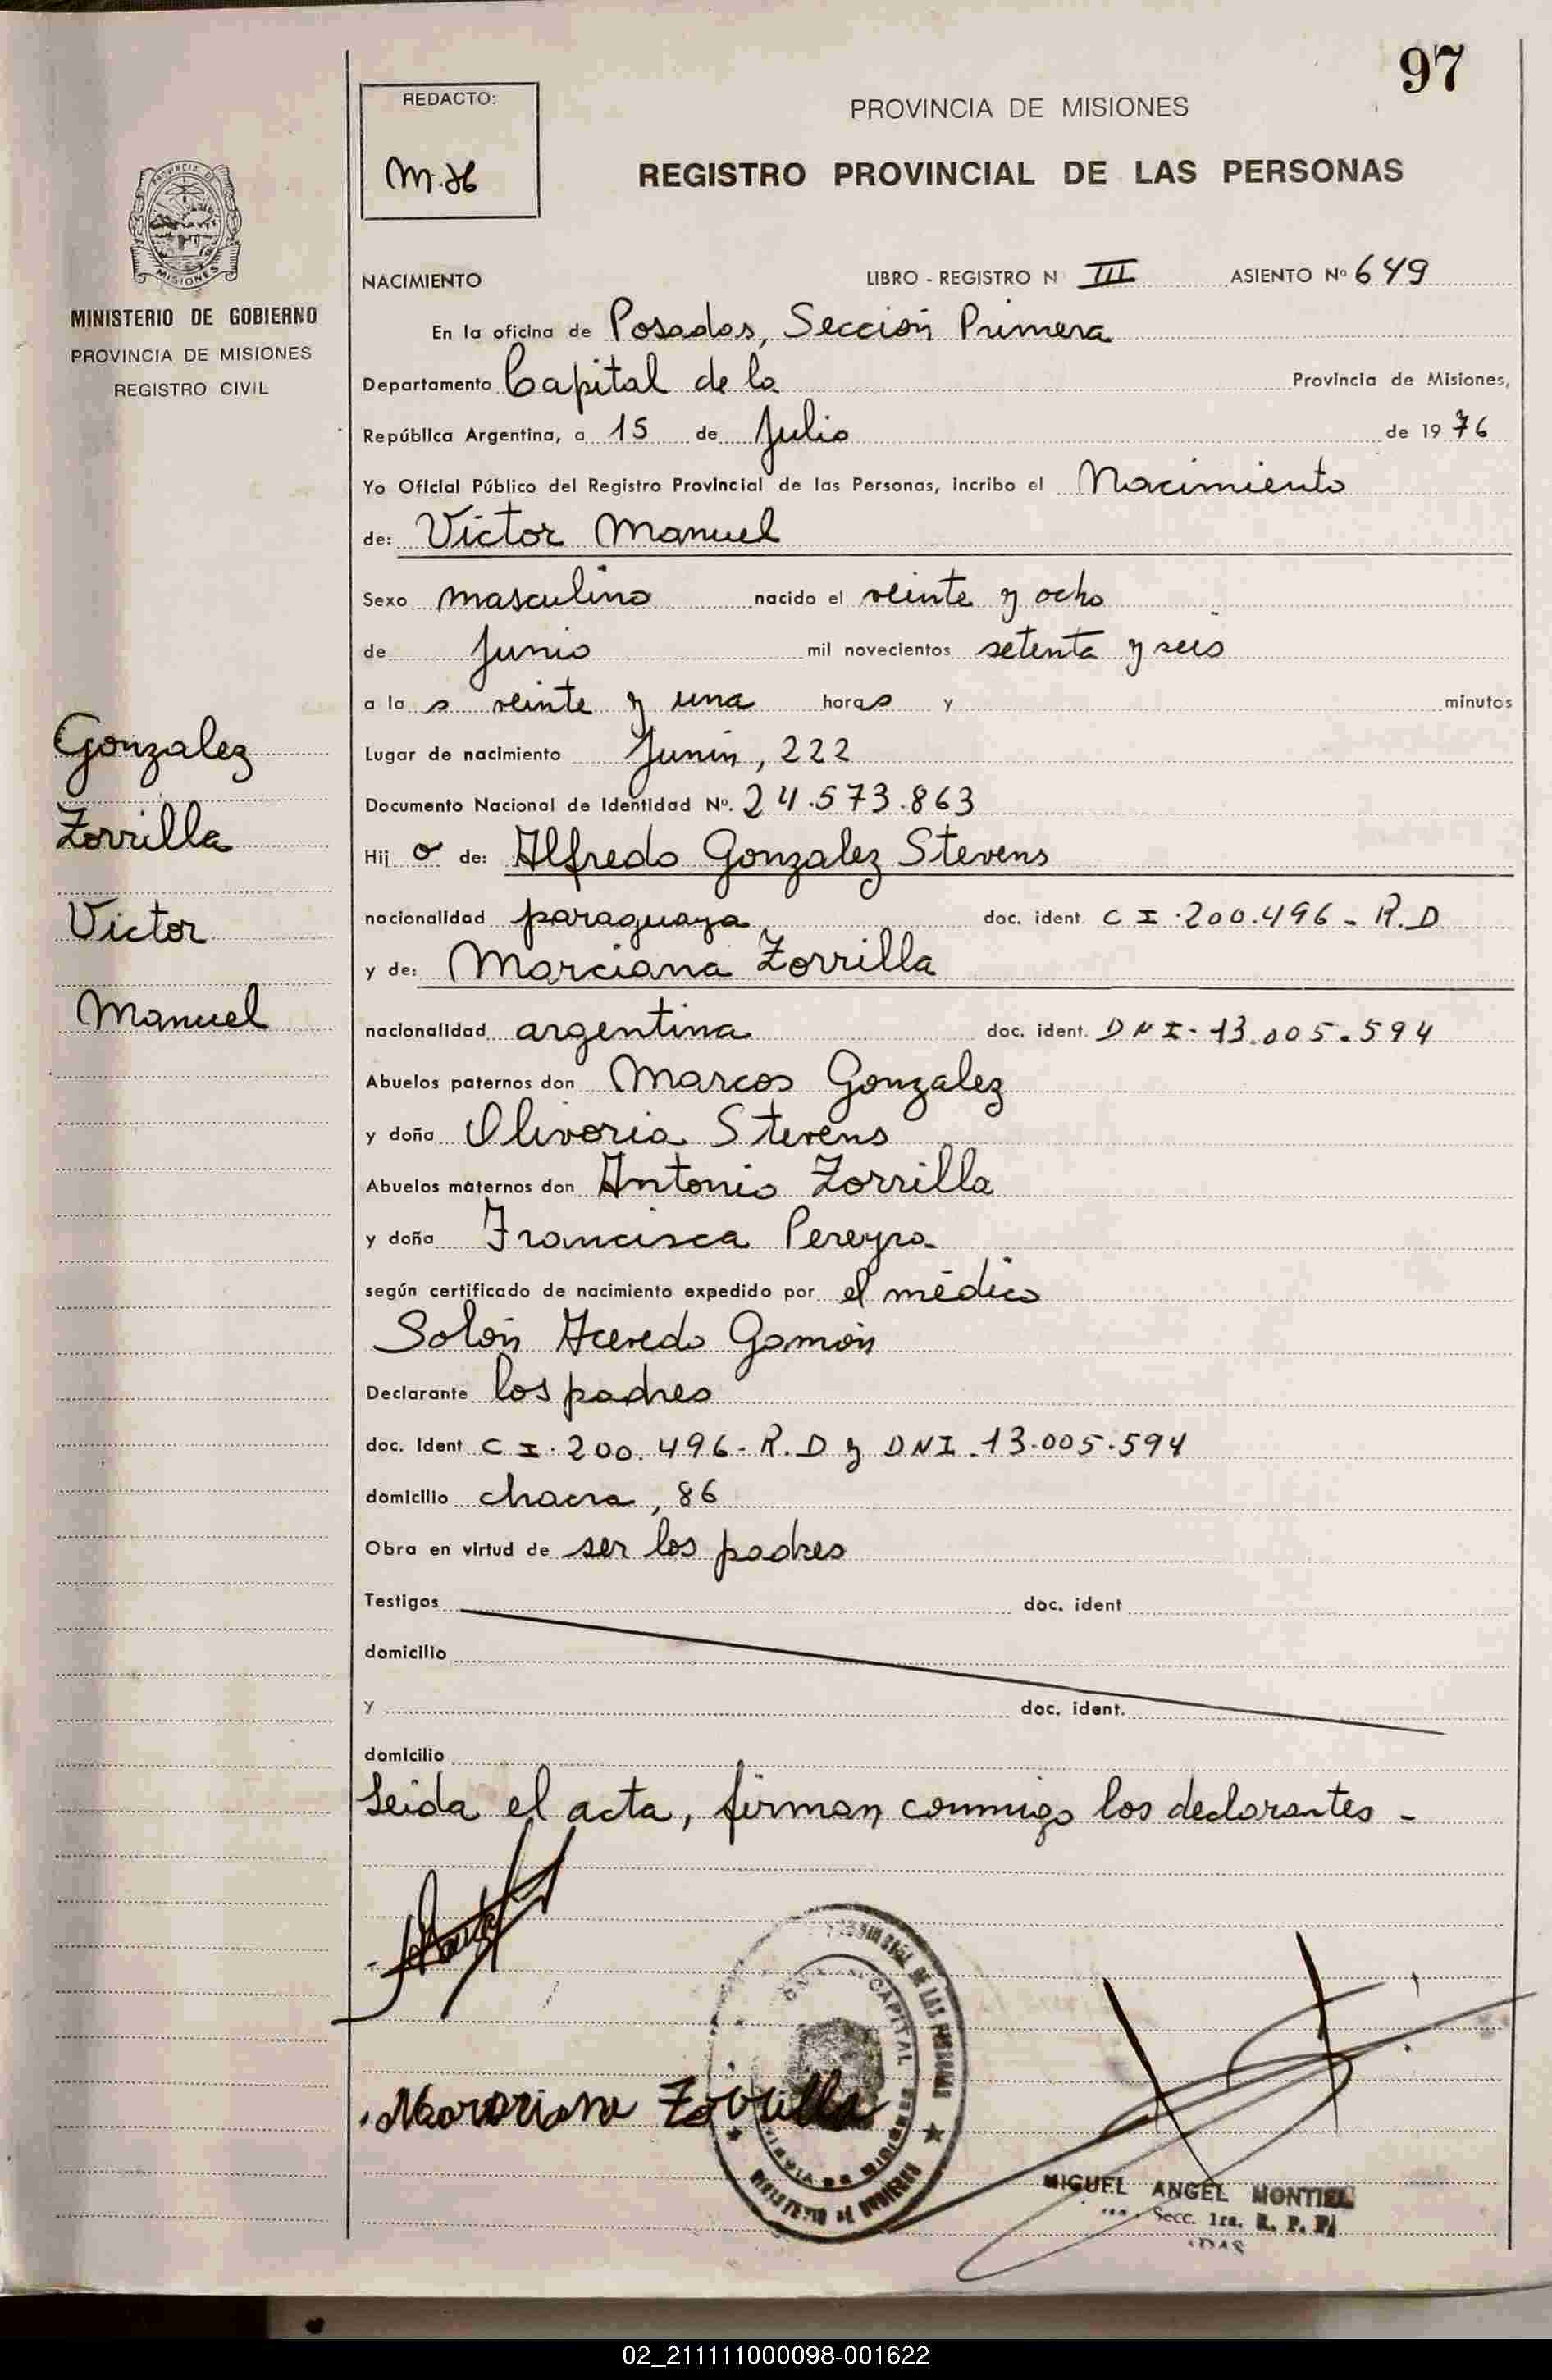 97
REDACTO:
M.H
PROVINCIA DE MISIONES
REGISTRO PROVINCIAL DE LAS PERSONAS
PROVINCIA DE
MISIONES
MINISTERIO DE GOBIERNO
PROVINCIA DE MISIONES
REGISTRO CIVIL
NACIMIENTO LIBRO - REGISTRO N III ASIENTO Nº 649
En la oficina de Posadas, Sección Primera
Departamento Capital de la Provincia de Misiones,
República Argentina, a 15 de Julio de 19 76
Yo Oficial Público del Registro Provincial de las Personas, incribo el Nacimiento
de: Victor Manuel
Sexo masculino nacido el veinte y ocho
de Junio mil novecientos setenta y seis
a la s veinte y una horas y minutos
Lugar de nacimiento Junin, 222
Documento Nacional de Identidad Nº. 24.573.863
Hij o de: Alfredo Gonzalez Stevens
nacionalidad paraguaya doc. ident. C I .200.496 - R.D
y de: Marciana Zorrilla
nacionalidad argentina doc. ident. DNI - 13.005.594
Abuelos paternos don Marcos Gonzalez
y doña Olivoria Stevens
Abuelos maternos don Antonio Zorrilla
y doña Francisca Pereyra
según certificado de nacimiento expedido por el médico
Solón Acevedo Gamón
Declarante los padres
doc. Ident C I . 200.496 - R.D y DNI .13.005.594
domicilio chacra, 86
Obra en virtud de ser los padres
Testigos doc. ident
domicilio
y doc. ident.
domicilio
Leida el acta, firman conmigo los declarantes -
Gonzalez
Zorrilla
Victor
Manuel
DE LAS PERSONAS
CAPITAL
MINISTERIO DE GOBIERNO
Zorrilla
MIGUEL ANGEL MONTIEL
Secc. 1ra. R. P. P.
02_211111000098-001622